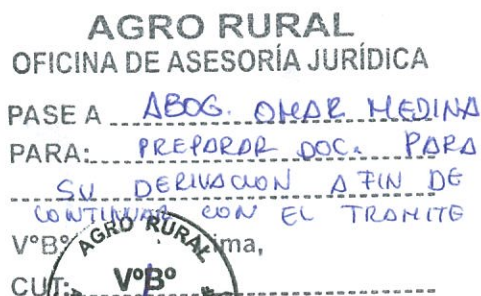 AGRO RURAL
OFICINA DE ASESORÍA JURÍDICA
PASE A ABOG. OMAR MEDINA
PARA: PREPARAR DOC. PARA
SU DERIVACION A FIN DE
CONTINUAR CON EL TRAMITE
V°B° Lima,
AGRO RURAL
CUT:
V°B°